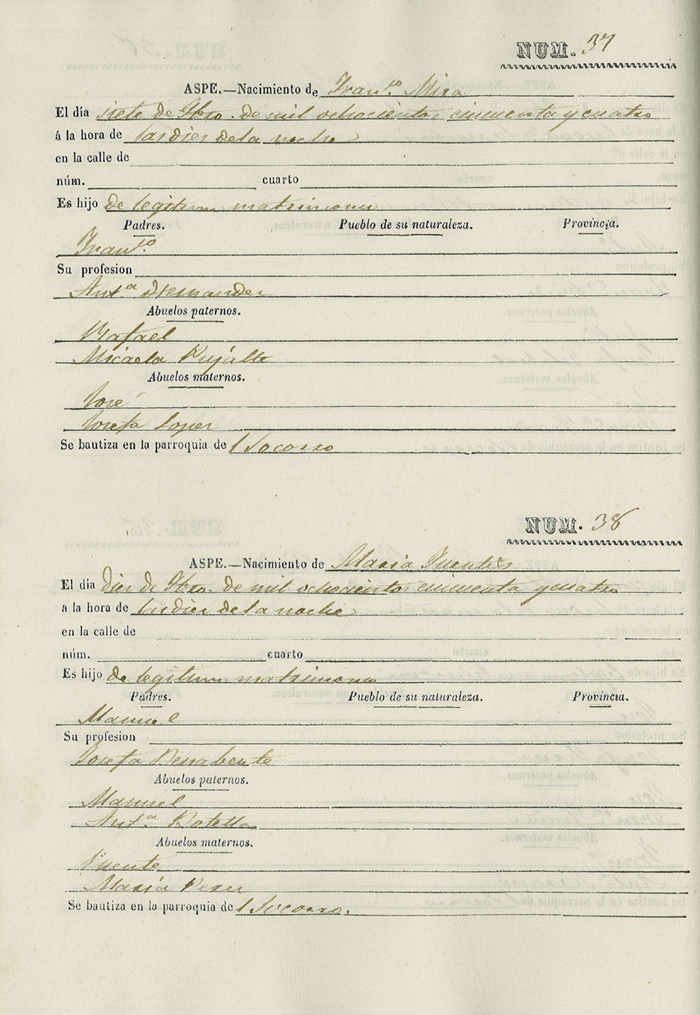 NUM. 37
ASPE.—Nacimiento de Fran.co Mira
El día siete de Obro. de mil ochocientos cincuenta y cuatro
á la hora de las diez de la noche
en la calle de
núm. cuarto
Es hijo de legitimo matrimonio
Padres. Pueblo de su naturaleza. Provincia.
Fran.co
Su profesion
Ant.a Hernandez
Abuelos paternos.
Rafael
Micaela
Abuelos maternos.
José
Josefa Lopez
Se bautiza en la parroquia del Socorro
NUM. 38
ASPE.—Nacimiento de Maria Fuentes
El día diez de de mil ochocientos cincuenta y cuatro
a la hora de las diez de la noche
en la calle de
núm. cuarto
Es hijo de legitimo matrimonio
Padres. Pueblo de su naturaleza. Provincia.
Manuel
Su profesion
Josefa Benabente
Abuelos paternos.
Manuel
Ant.a Botella
Abuelos maternos.
Vicente
Maria Perez
Se bautiza en la parroquia del Socorro.